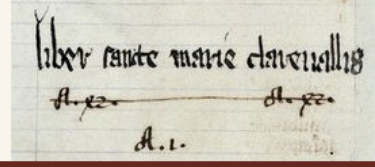 liber sancte marie clarevallis
A. xx. A. xx.
A. 1.